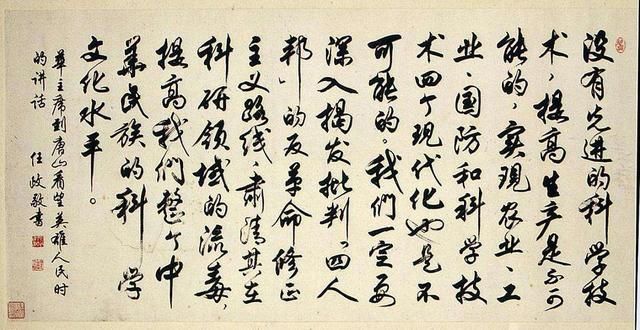 没有先进的科学技
术，提高生产是不可
能的，实现农业、工
业、国防和科学技
术四个现代化也是不
可能的。我们一定要
深入揭发批判「四人
帮」的反革命修正
主义路线，肃清其在
科研领域的流毒，
提高我们整个中
华民族的科学
文化水平。
华主席到唐山看望英雄人民时
的讲话 任政敬书